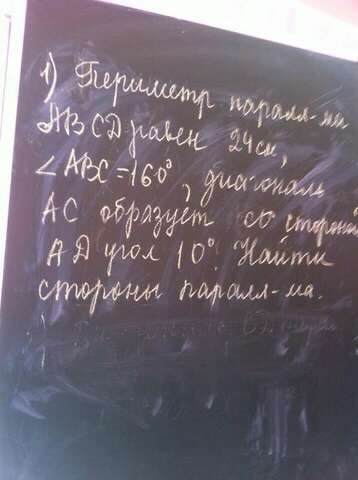 1) Периметр паралл-ма
ABCD равен 24см,
∠ABC=160°, диагональ
AC образует со стороной
AD угол 10°. Найти
стороны паралл-ма.